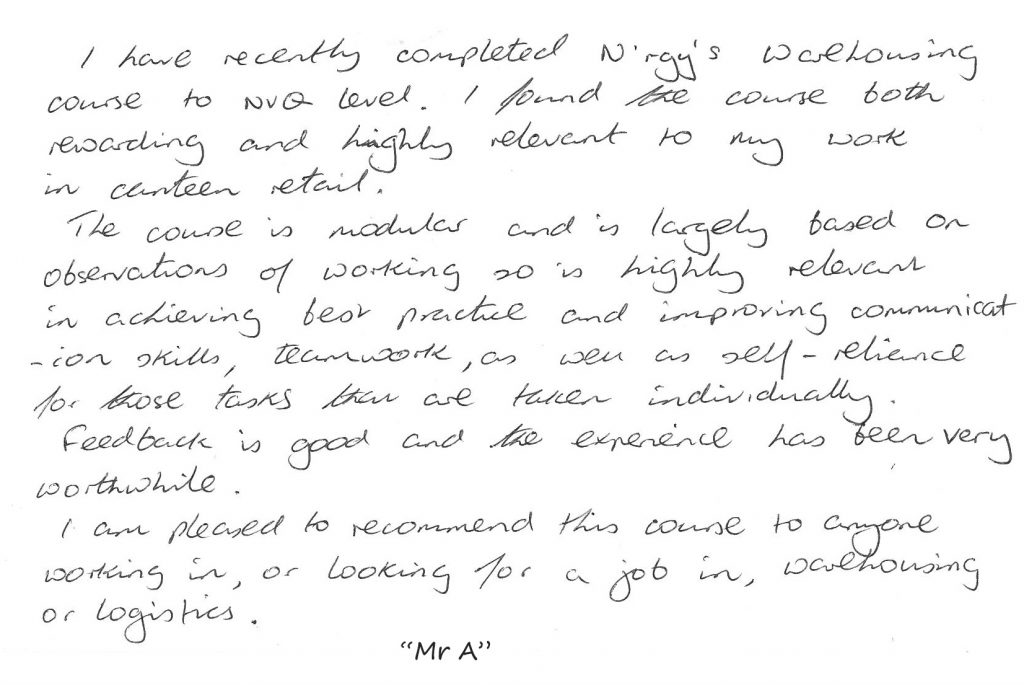 I have recently completed N'rgy's warehousing
course to NVQ level. I found the course both
rewarding and highly relevant to my work
in canteen retail.
The course is modular and is largely based on
observations of working so is highly relevant
in achieving best practice and improving communicat
-ion skills, teamwork, as well as self-reliance
for those tasks that are taken individually.
Feedback is good and the experience has been very
worthwhile.
I am pleased to recommend this course to anyone
working in, or looking for a job in, warehousing
or logistics.
"Mr A"